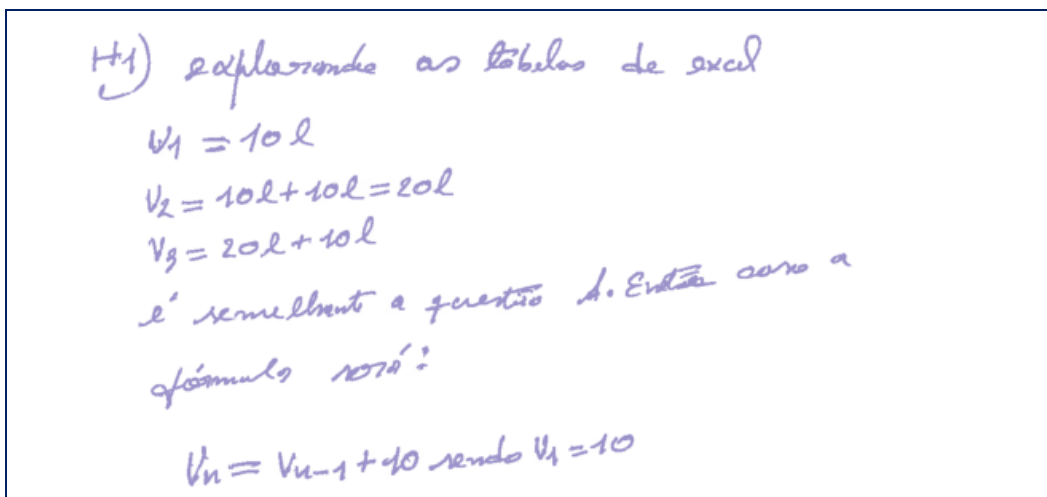 H1) explorando as tabelas de excel
V1 = 10l
V2 = 10l + 10l = 20l
V3 = 20l + 10l
é semelhante a questão A. Então a
fórmula será:
Vn = Vn-1 + 10 sendo V1 = 10